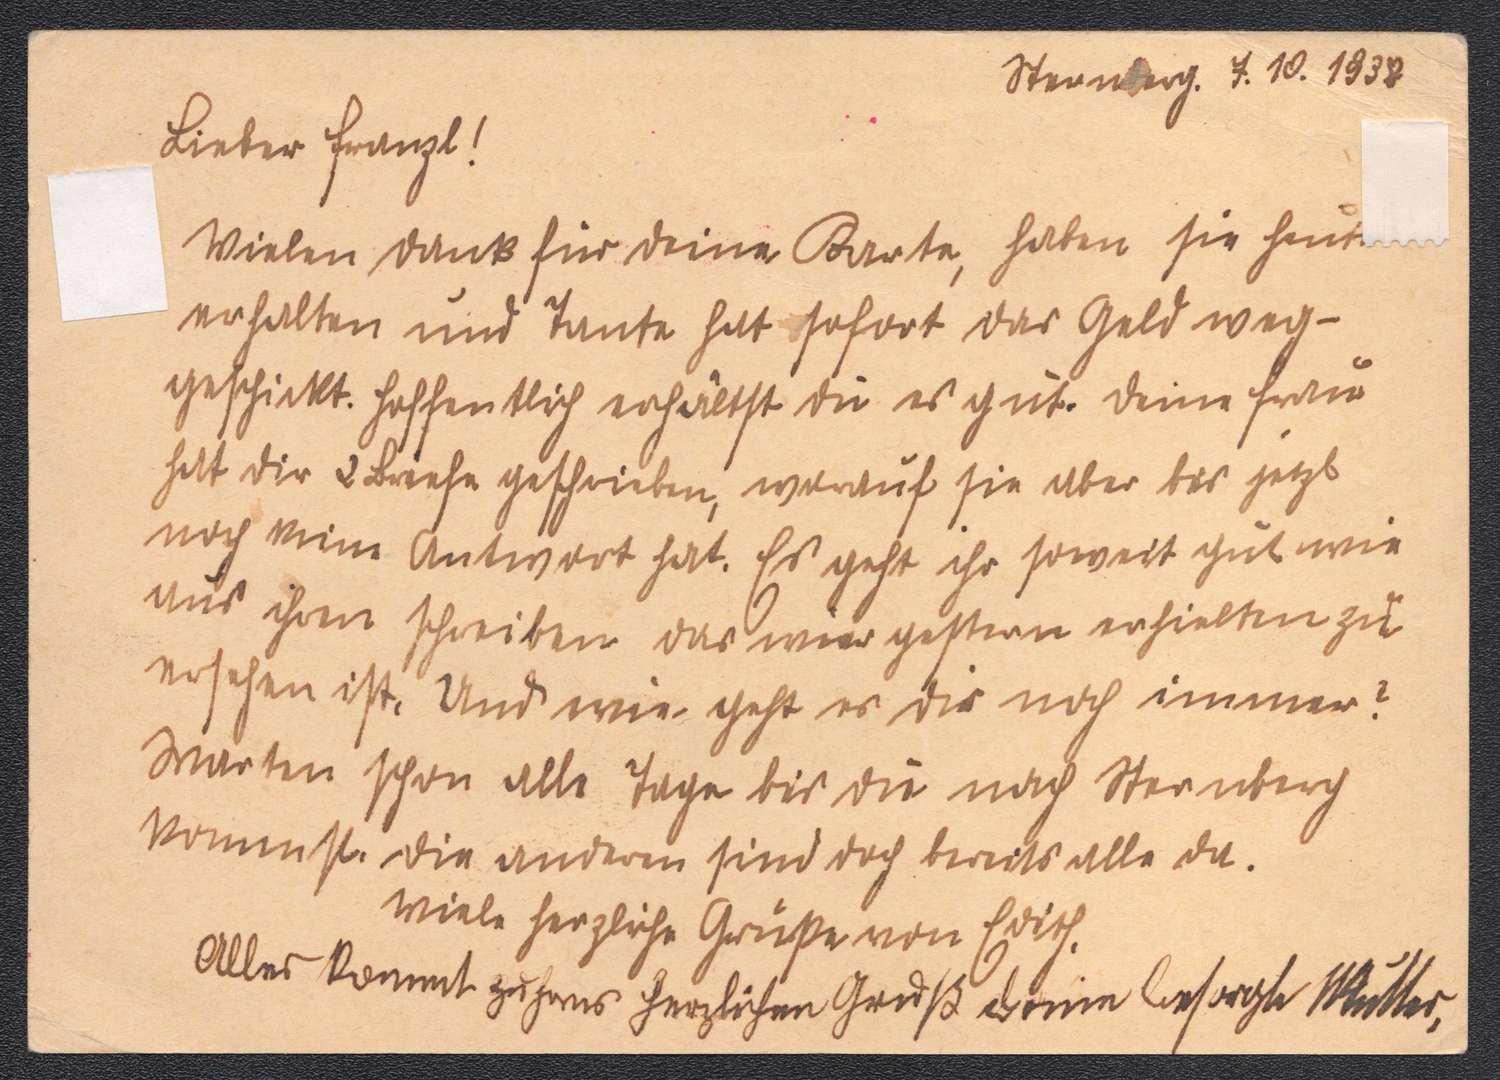 Sternberg. 7. 10. 1938
Lieber Franzl!
Vielen Dank für deine Karte, haben sie heute
erhalten und Tante hat sofort das Geld weg-
geschickt. Hoffentlich erhältst du es gut. Deine Frau
hat dir 2 Briefe geschrieben, worauf sie aber bis jetzt
noch keine Antwort hat. Es geht ihr soweit gut wie
aus ihren schreiben das wier gestern erhielten zu
ersehen ist. Und wie geht es dir noch immer?
Warten schon alle Tage bis du nach Sternberg
kommst. Die anderen sind doch bereits alle da.
Viele herzliche Grüße von Edith.
Alles kommt zuhaus Herzlichen Gruß deine besorgte Mutter,